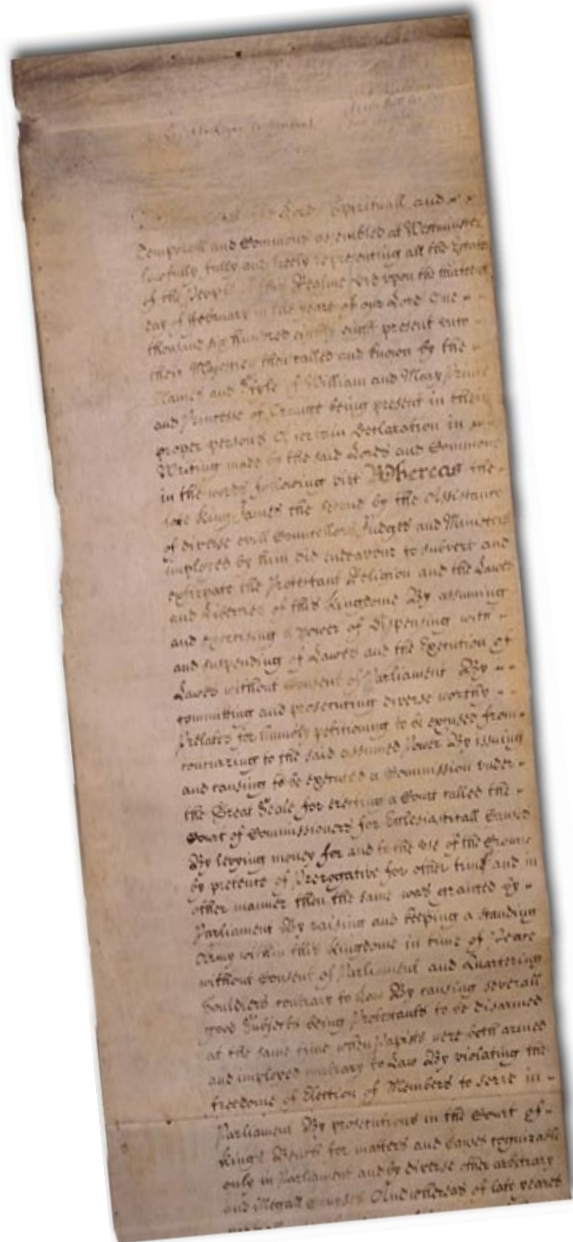 Lords Spirituall and
Temporall and Commons assembled at Westminster
lawfully fully and freely representing all the Estates
of the People of this Realme did upon the thirteenth
day of February in the yeare of our Lord One
thousand six hundred eighty eight present unto
their Majesties then called and known by the
Names and Stile of William and Mary Prince
and Princesse of Orange being present in their
proper persons A certain Declaration in
Writing made by the said Lords and Commons
in the words following vizt Whereas the
late King James the second by the Assistance
of diverse evill Councellors Judges and Ministers
imployed by him did endeavour to subvert and
extirpate the Protestant Religion and the Lawes
and Liberties of this Kingdome By assuming
and exercising a power of dispensing with
and suspending of Lawes and the Execution of
Lawes without Consent of Parliament By
committing and prosecuting diverse worthy
Prelates for humbly petitioning to be excused from
concurring to the said assumed Power By issuing
and causing to be executed a Commission under
the Great Seale for erecting a Court called the
Court of Commissioners for Ecclesiasticall Causes
By levying money for and to the use of the Crowne
by pretence of Prerogative for other time and in
other manner then the same was granted by
Parliament By raising and keeping a standing
Army within this Kingdome in time of Peace
without Consent of Parliament and Quartering
Souldiers contrary to Law By causing severall
good Subjects being Protestants to be disarmed
at the same time when Papists were both armed
and imployed contrary to Law By violating the
freedome of Election of Members to serve in
Parliament By prosecutions in the Court of
Kings Bench for matters and causes cognizable
only in Parliament and by diverse other arbitrary
and illegall courses And whereas of late yeares